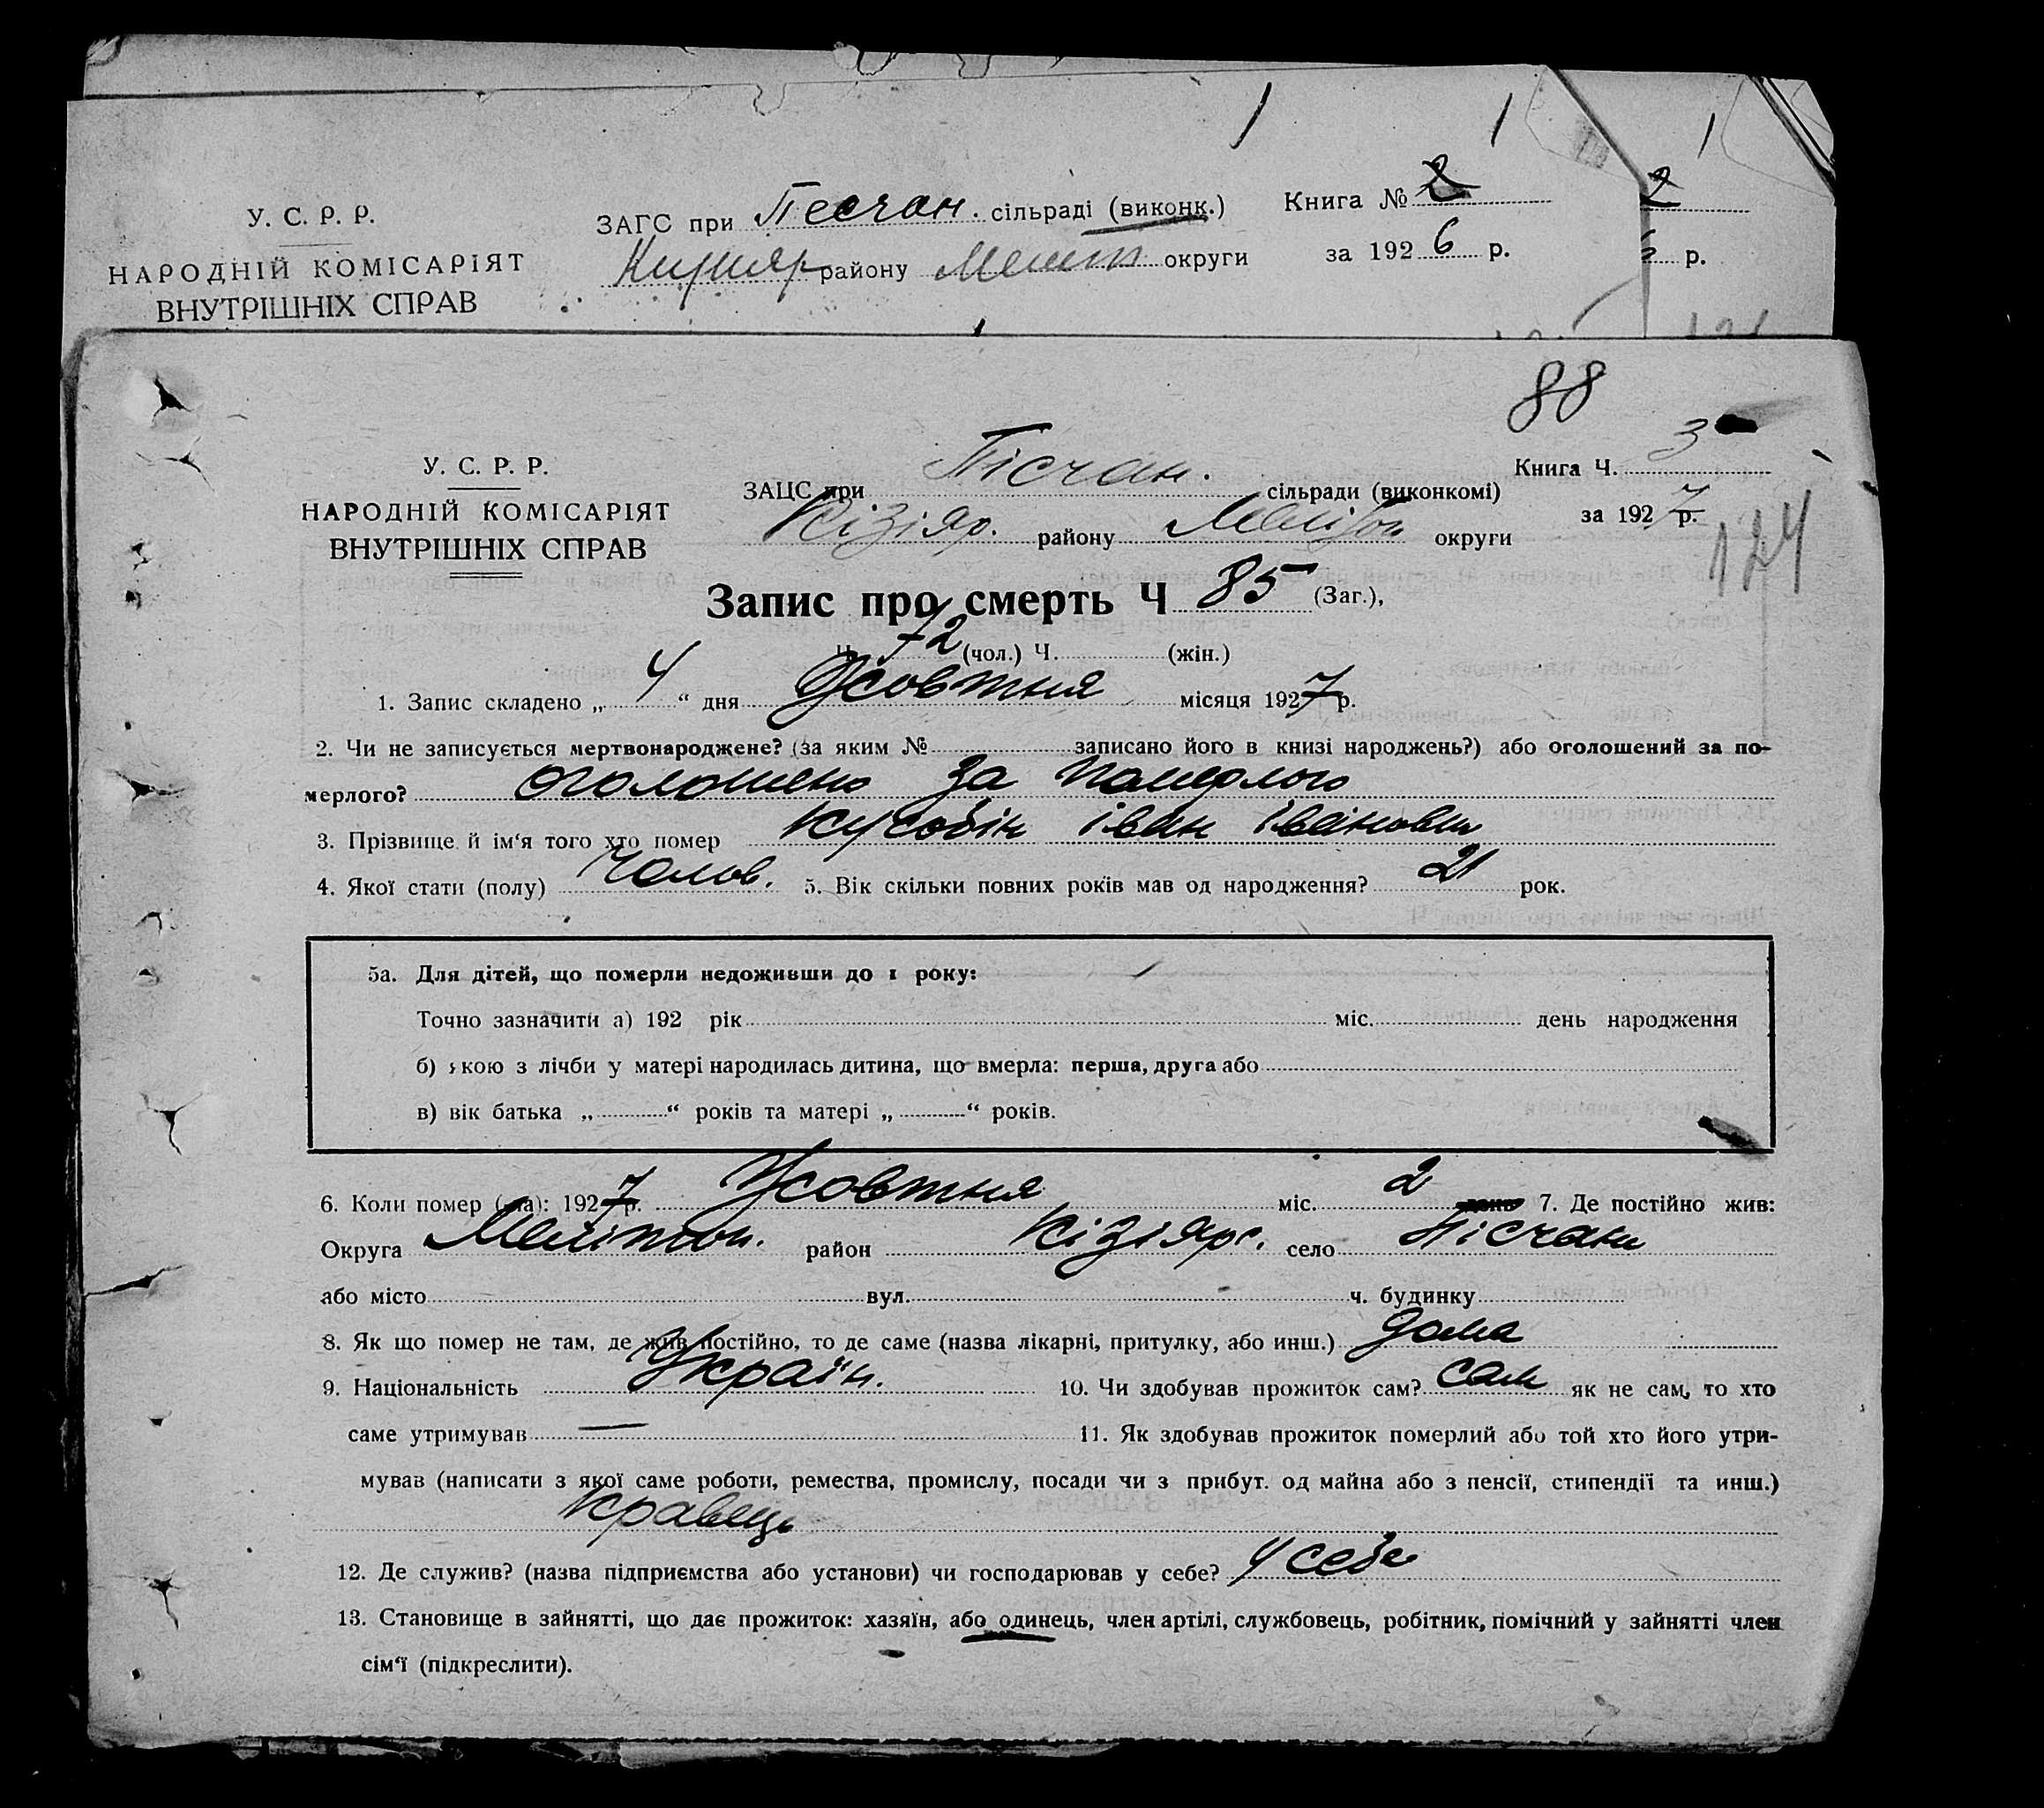 У. С. Р. Р.
НАРОДНІЙ КОМІСАРІЯТ
ВНУТРІШНІХ СПРАВ
ЗАГС при Песчан. сільраді (виконк.)
району округи
Книга № 2
за 1926 р.
2
6 р.
88
У. С. Р. Р.
НАРОДНІЙ КОМІСАРІЯТ
ВНУТРІШНІХ СПРАВ
ЗАЦС при Пісчан. сільради (виконкомі)
Кізіяр. району округи
Книга Ч. 3
за 1927 р.
124
Запис про смерть Ч 85 (Заг.),
Ч. 72 (чол.) Ч. (жін.)
1. Запис складено „ 4 “ дня Жовтня місяця 1927 р.
2. Чи не записується мертвонароджене? (за яким № записано його в книзі народжень?) або оголошений за по-
мерлого? оголошено за померлого
3. Прізвище й ім‘я того хто помер Кусобін Іван Іванович
4. Якої стати (полу) Чолов. 5. Вік скільки повних років мав од народження? 21 рок.
5а. Для дітей, що померли недоживши до 1 року:
Точно зазначити а) 192 рік міс. день народження
б) якою з лічби у матері народилась дитина, що вмерла: перша, друга або
в) вік батька „ “ років та матері „ “ років.
6. Коли помер (ла): 1927 р. Жовтня міс. 2 день 7. Де постійно жив:
Округа Меліпол. район Кізіярс. село Пісчане
або місто вул. ч. будинку
8. Як що помер не там, де жив постійно, то де саме (назва лікарні, притулку, або инш.) дома
9. Національність Україн. 10. Чи здобував прожиток сам? сам як не сам, то хто
саме утримував — 11. Як здобував прожиток померлий або той хто його утри-
мував (написати з якої саме роботи, ремества, промислу, посади чи з прибут. од майна або з пенсії, стипендії та инш.)
Кравець
12. Де служив? (назва підприємства або установи) чи господарював у себе? У себе
13. Становище в зайнятті, що дає прожиток: хазяїн, або одинець, член артілі, службовець, робітник, помічний у зайнятті член
сім‘ї (підкреслити).